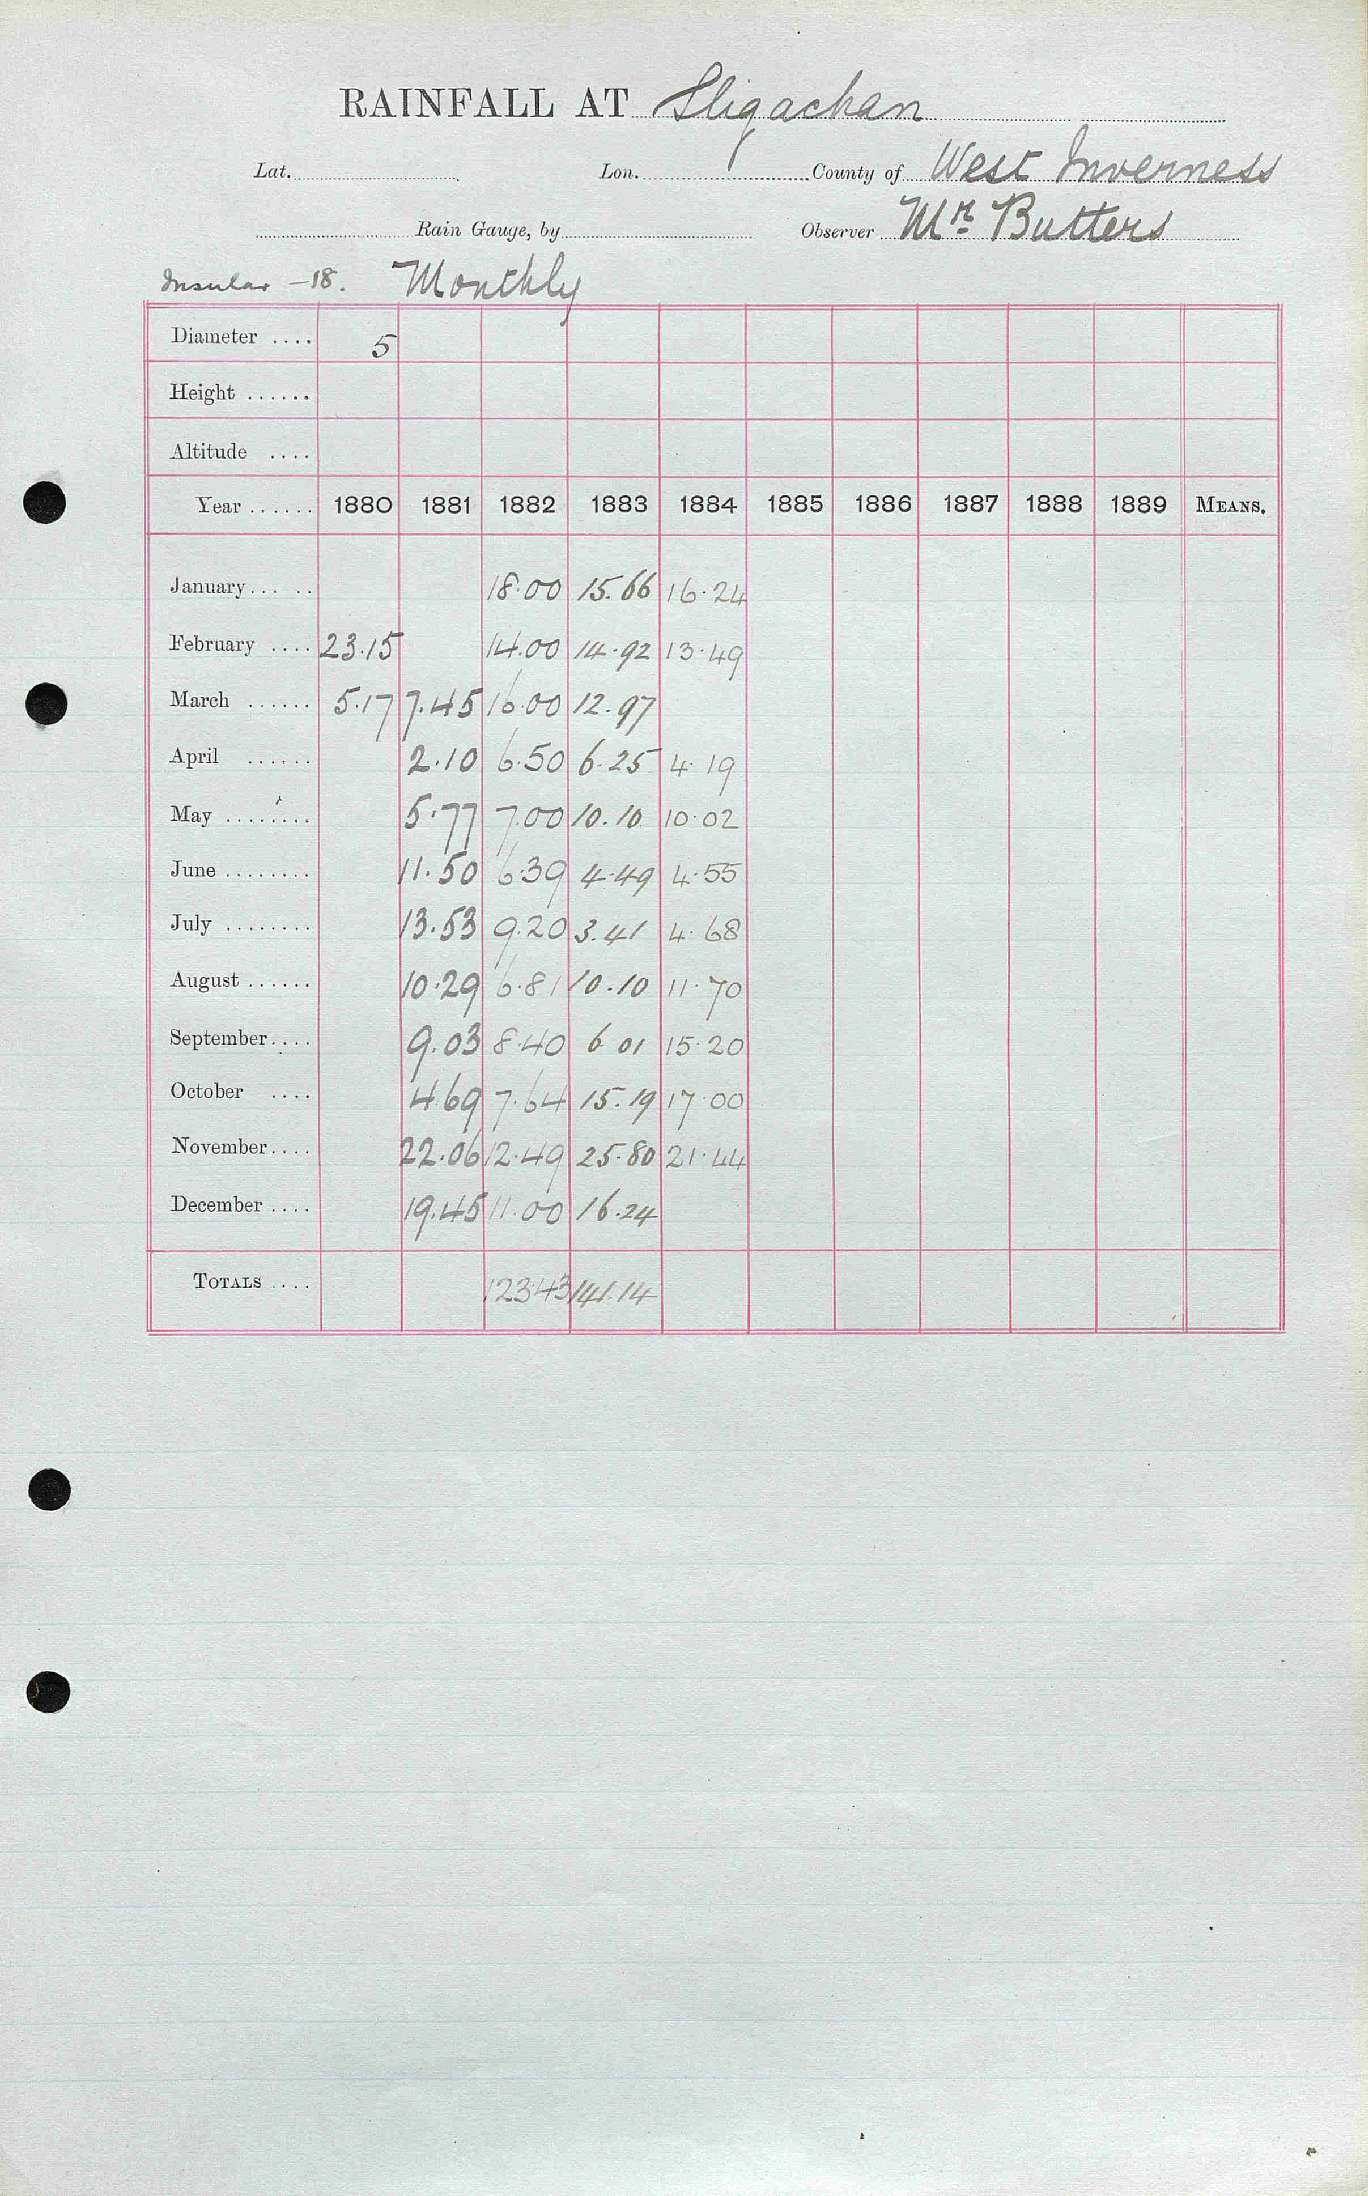 RAINFALL AT Sligachan
Lat. Lon. County of West Inverness
Rain Gauge, by Observer Mr. Butters
Insular -18. Monthly
Diameter .... 5
Height ......
Altitude ....
Year ...... 1880 1881 1882 1883 1884 1885 1886 1887 1888 1889 MEANS.
January... .. 18.00 15.66 16.24
February .... 23.15 14.00 14.92 13.49
March ...... 5.17 7.45 16.00 12.97
April ...... 2.10 6.50 6.25 4.19
May ........ 5.77 7.00 10.10 10.02
June ........ 11.50 6.39 4.49 4.55
July ........ 13.53 9.20 3.41 4.68
August ...... 10.29 6.81 10.10 11.70
September.... 9.03 8.40 6 01 15.20
October .... 4.69 7.64 15.19 17.00
November.... 22.06 12.49 25.80 21.44
December .... 19.45 11.00 16.24
TOTALS .... 123.43 141.14